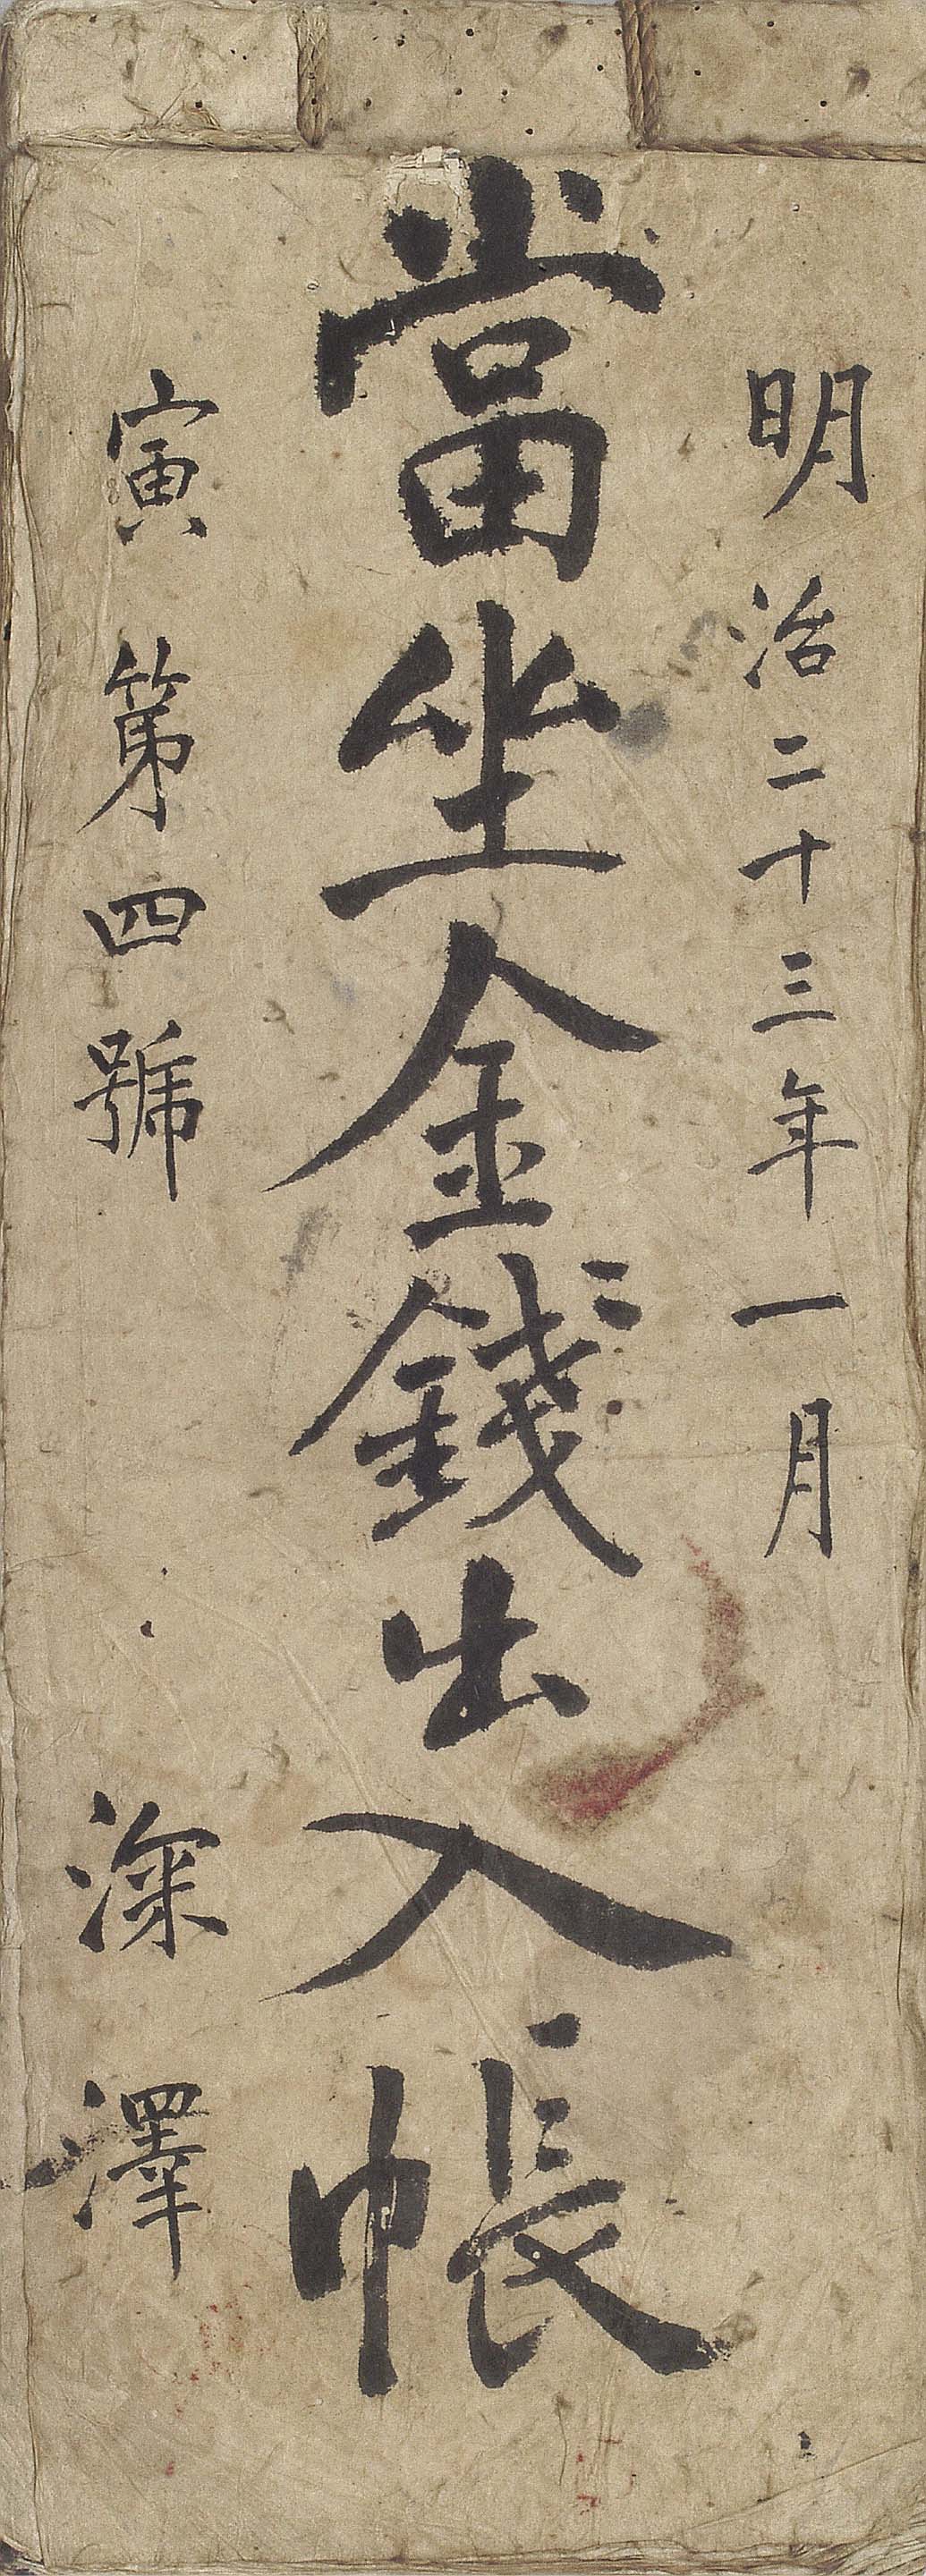 明治二十三年一月
當坐金錢出入帳
寅第四號
深澤